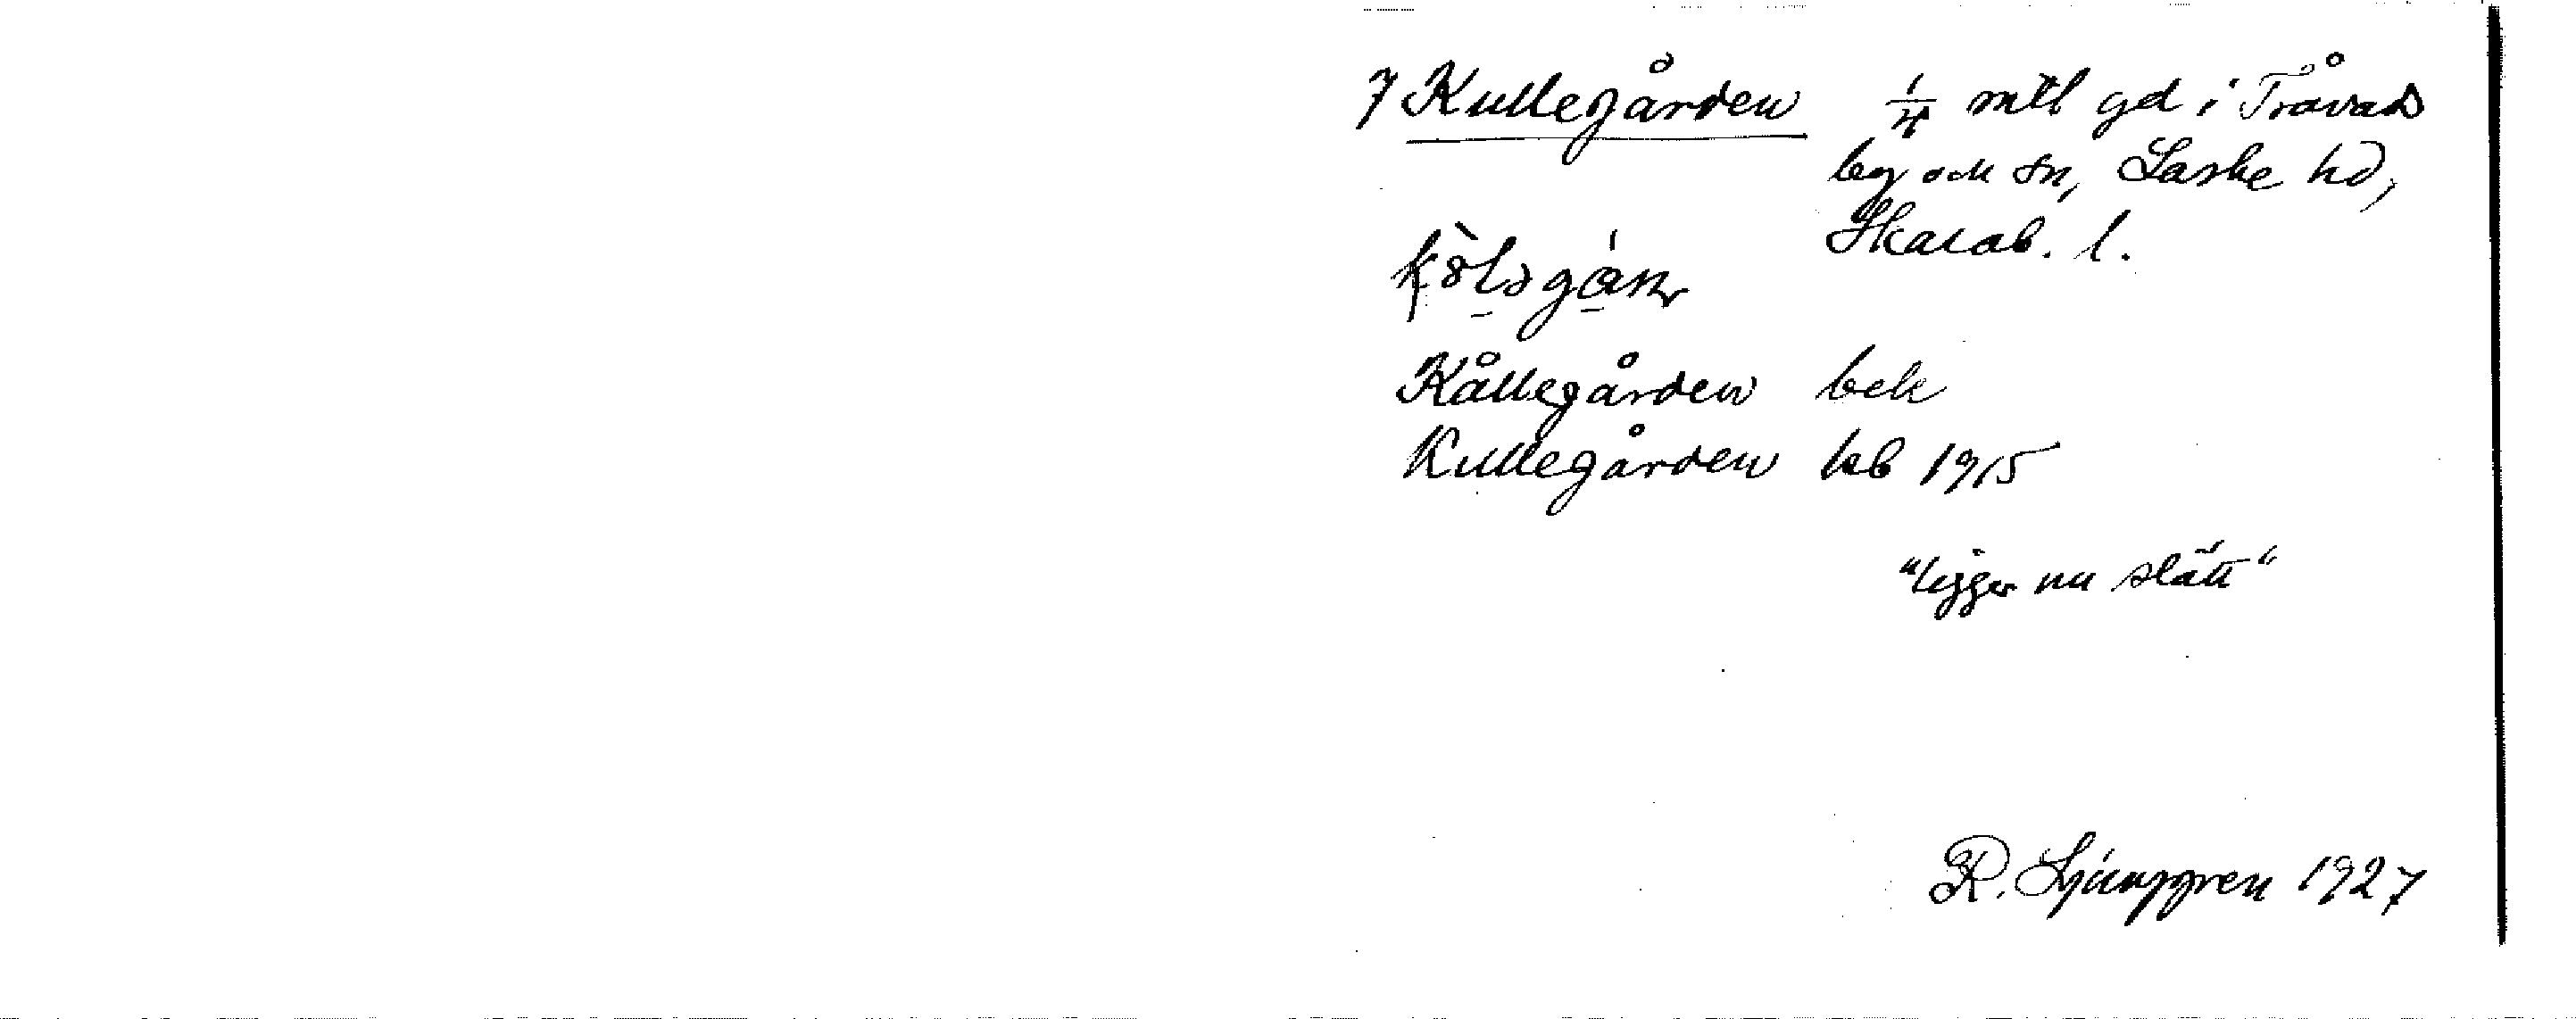 7 Kullegården 1/4 mtl gd i Tråvads
by och sn, Laske hd,
Skarab. l.
Kållegården bek
Kullegården kb 1915
"ligger nu slätt"
R. Ljunggren 1927